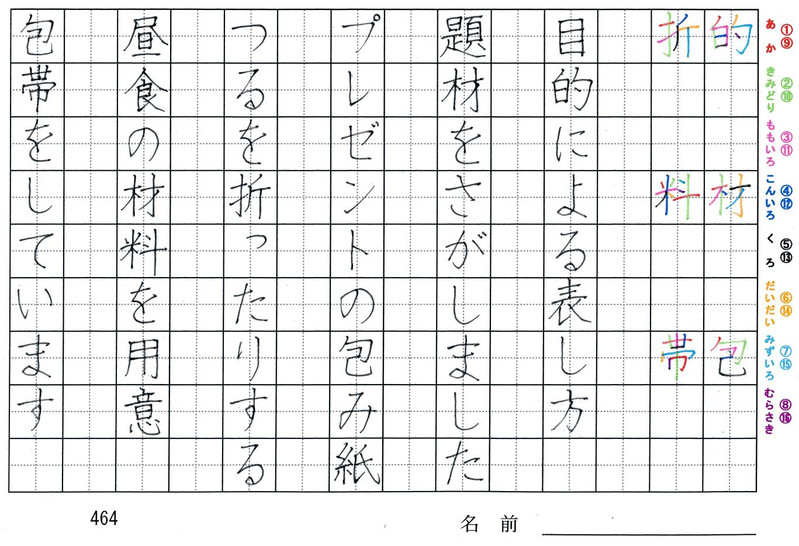 ①⑨ あか
②⑩ きみどり
③⑪ ももいろ
④⑫ こんいろ
⑤⑬ くろ
⑥⑭ だいだい
⑦⑮ みずいろ
⑧⑯ むらさき
的材包
折料帯
目的による表し方
題材をさがしました
プレゼントの包み紙
つるを折ったりする
昼食の材料を用意
包帯をしています
464
名前